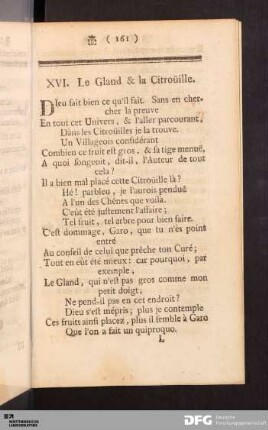 ( 161 )
XVI. Le Gland & la Citroüille.
DIeu fait bien ce qu'il fait. Sans en cher-
cher la preuve
En tout cet Univers, & l'aller parcourant,
Dans les Citroüilles je la trouve.
Un Villageois considérant
Combien ce fruit est gros, & sa tige menuë,
A quoi songeoit, dit-il, l'Auteur de tout
cela?
Il a bien mal placé cette Citroüille là?
Hé! parbleu, je l'aurois pendué
A l'un des Chênes que voila.
C'eût été justement l'affaire;
Tel fruit, tel arbre pour bien faire.
C'est dommage, Garo, que tu n'es point
entré
Au conseil de celui que prêche ton Curé;
Tout en eût été mieux: car pourquoi, par
exemple,
Le Gland, qui n'est pas gros comme mon
petit doigt,
Ne pend-il pas en cet endroit?
Dieu s'est mépris; plus je contemple
Ces fruits ainsi placez, plus il semble à Garo
Que l'on a fait un quiproquo.
L
DFG Deutsche
Forschungsgemeinschaft